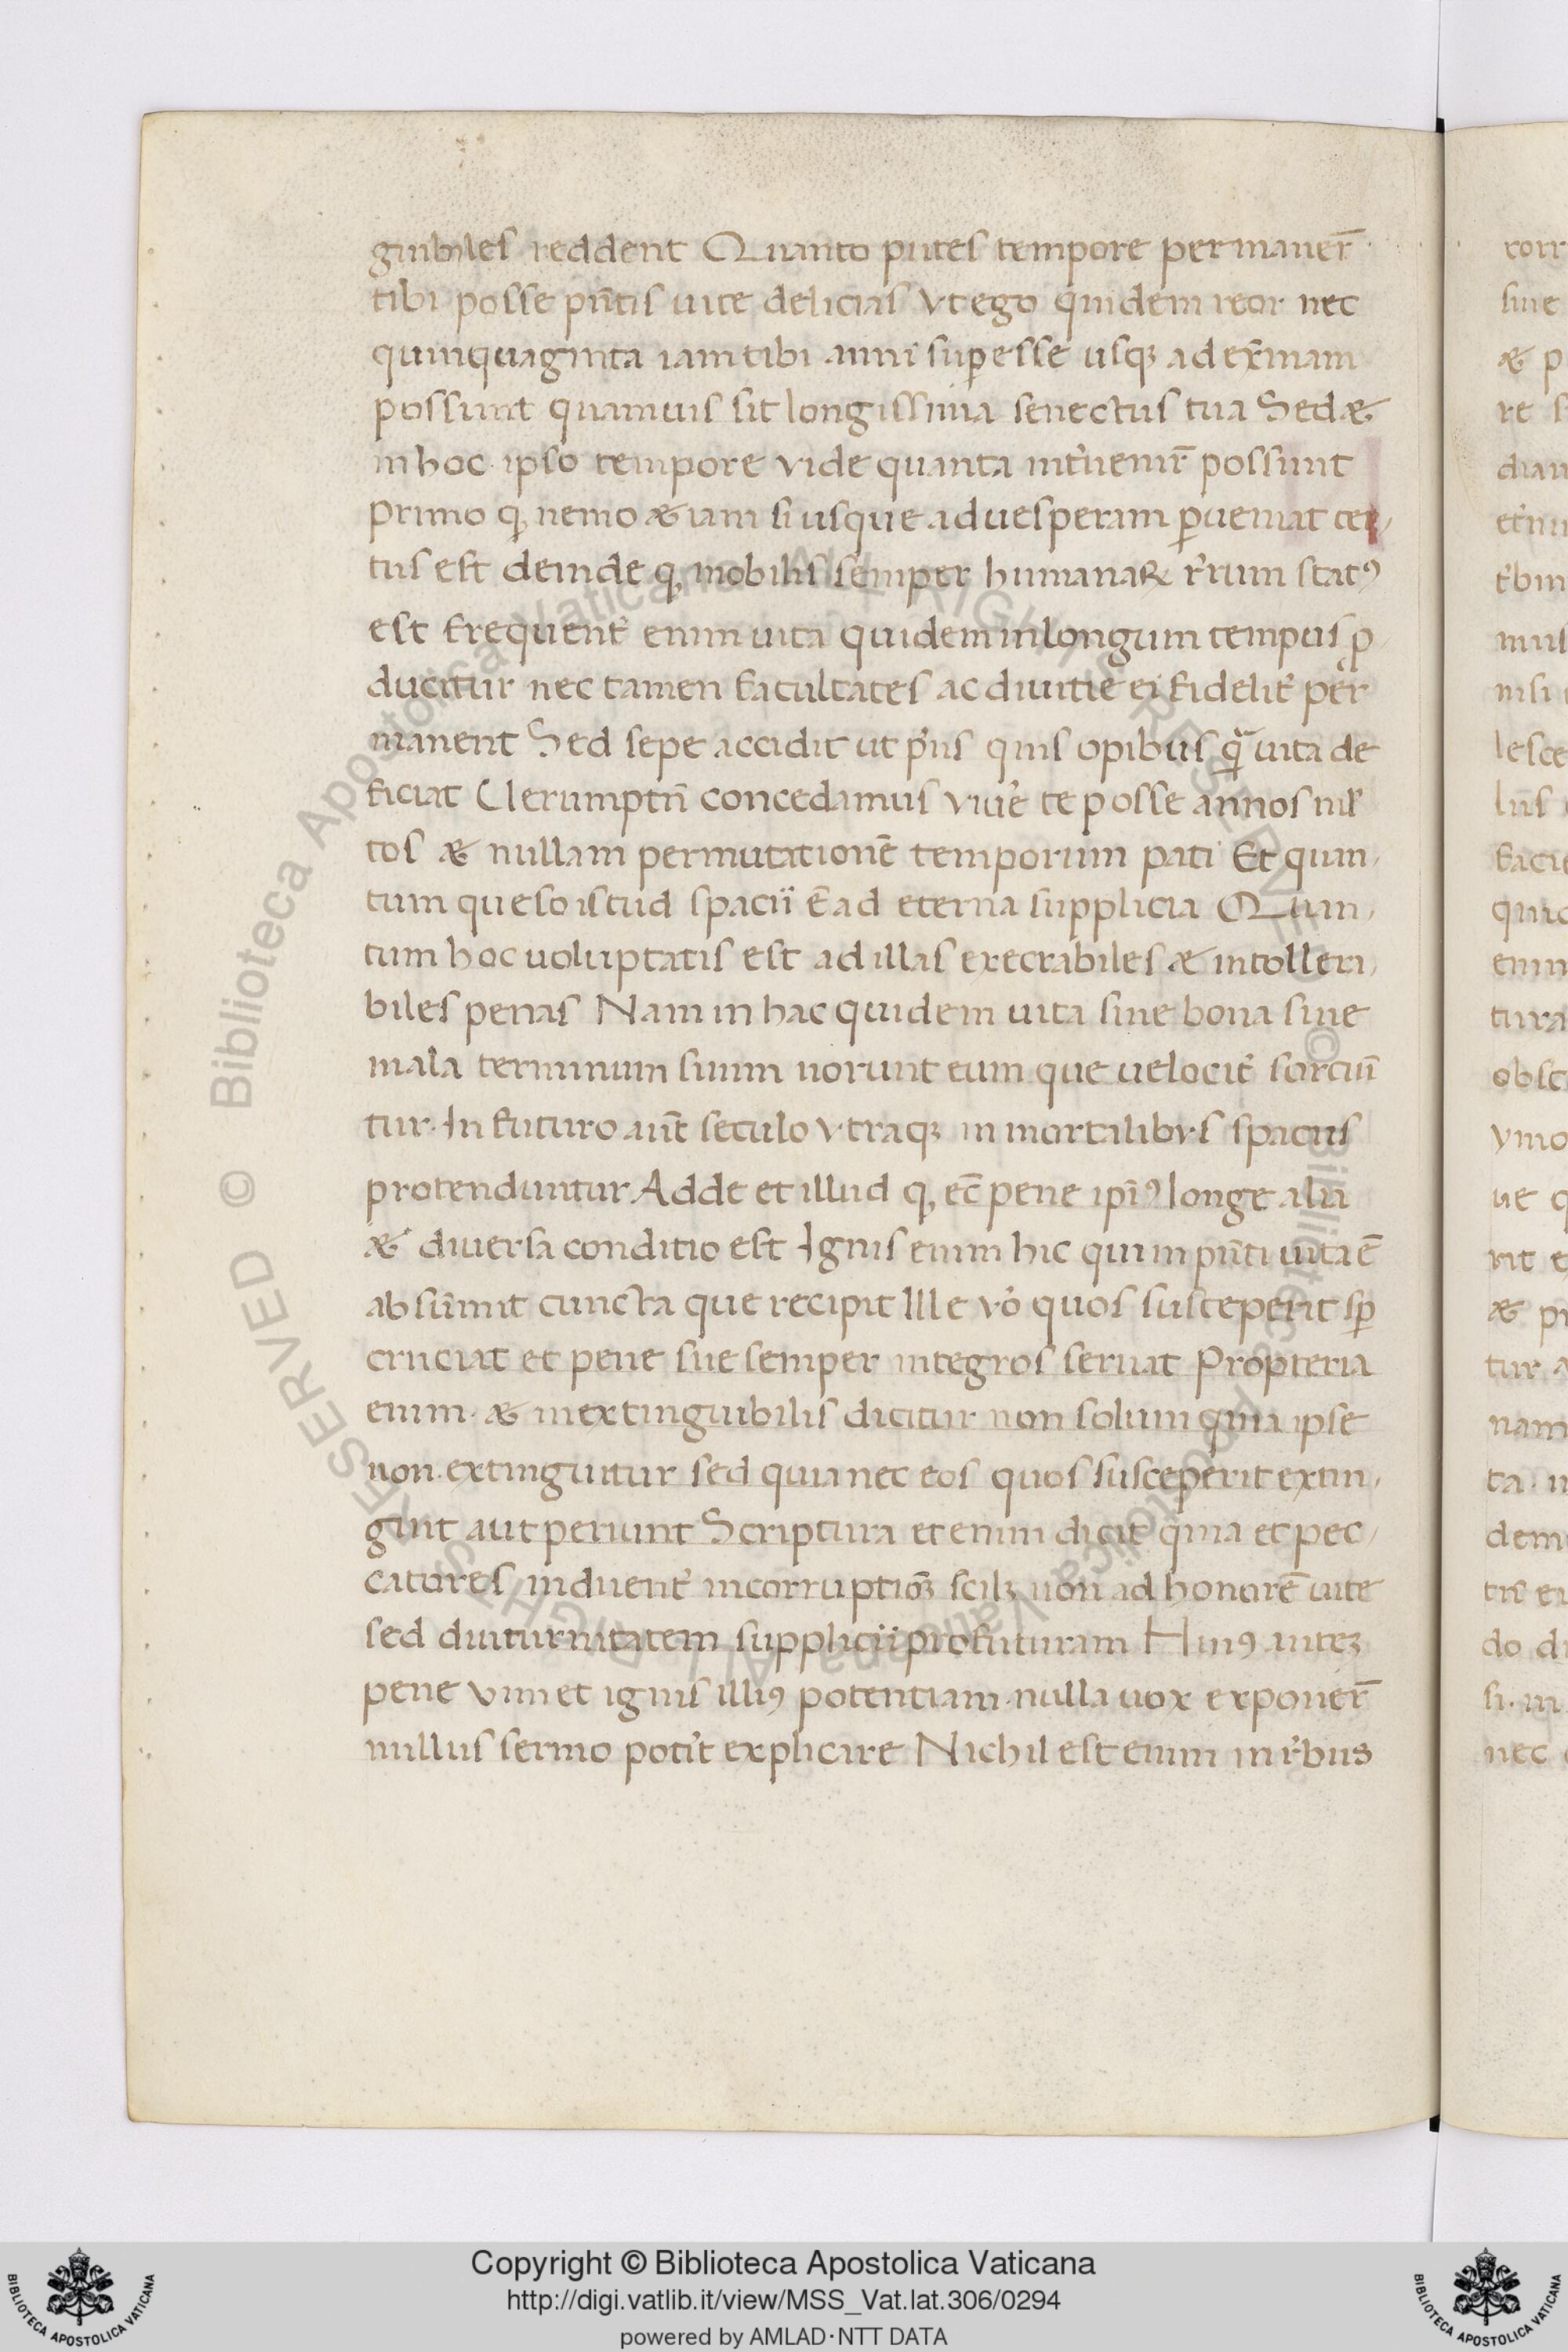 guibiles reddent Quanto putes tempore permaner̄
tibi posse pn̄tis uite delicias Vt ego quidem reor nec
quinquaginta iam tibi anni sup̲esse usqꝫ ad ext̄mam
possunt quamuis sit longissima senectus tua Sed &
in hoc ipso tempore vide quanta int̓uenir̄ possunt
Primo ꝙ nemo &iam si usque ad uesperam ꝑueniat cer
tus est deinde ꝙ mobilis semper humanaꝝ r̓rum statꝰ
est frequent̓ enim uita quidem in longum tempus ꝓ
ducitur nec tamen facultates ac diuitie ei fidelit̓ per
manent Sed sepe accidit ut pͥus quis opibus qᷓ uita de
ficiat Uerumptn̄ concedamus viue̓ te posse annos ml̓
tos & nullam permutationē temporum pati Et quan
tum queso istud spacii ē ad eterna supplicia Quan
tum hoc uoluptatis est ad illas execrabiles & intolleri
biles penas Nam in hac quidem uita siue bona siue
mala terminum suum norunt eum que uelocit̓ sorciū
tur. In futuro aut̄ seculo vtraqꝫ in mortalibus spaciis
protenduntur. Adde et illud ꝙ ec̄ pene ip̄iꝰ longe alia
& diuersa conditio est Ignis enim hic qui in pn̄ti uita ē
absūmit cuncta que recipit Ille vo̓ quos susceperit sꝑ
cruciat et pene sue semper integros seruat Propteria
enim & inextinguibilis dicitur non solum quia ipse
non extinguitur sed quia nec eos quos susceperit extin
guit aut periunt Scriptura et enim dicit quia et pec
catores induent̓ incorruptioꝫ scilꝫ non ad honorē uite
sed diuturnitatem supplicii profuturam Huiꝰ auteꝫ
pene vim et ignis illiꝰ potentiam nulla uox exponer̄
nullus sermo potit̓ explicare Nichil est enim in r̓bus
Copyright © Biblioteca Apostolica Vaticana
http://digi.vatlib.it/view/MSS_Vat.lat.306/0294
powered by AMLAD·NTT DATA